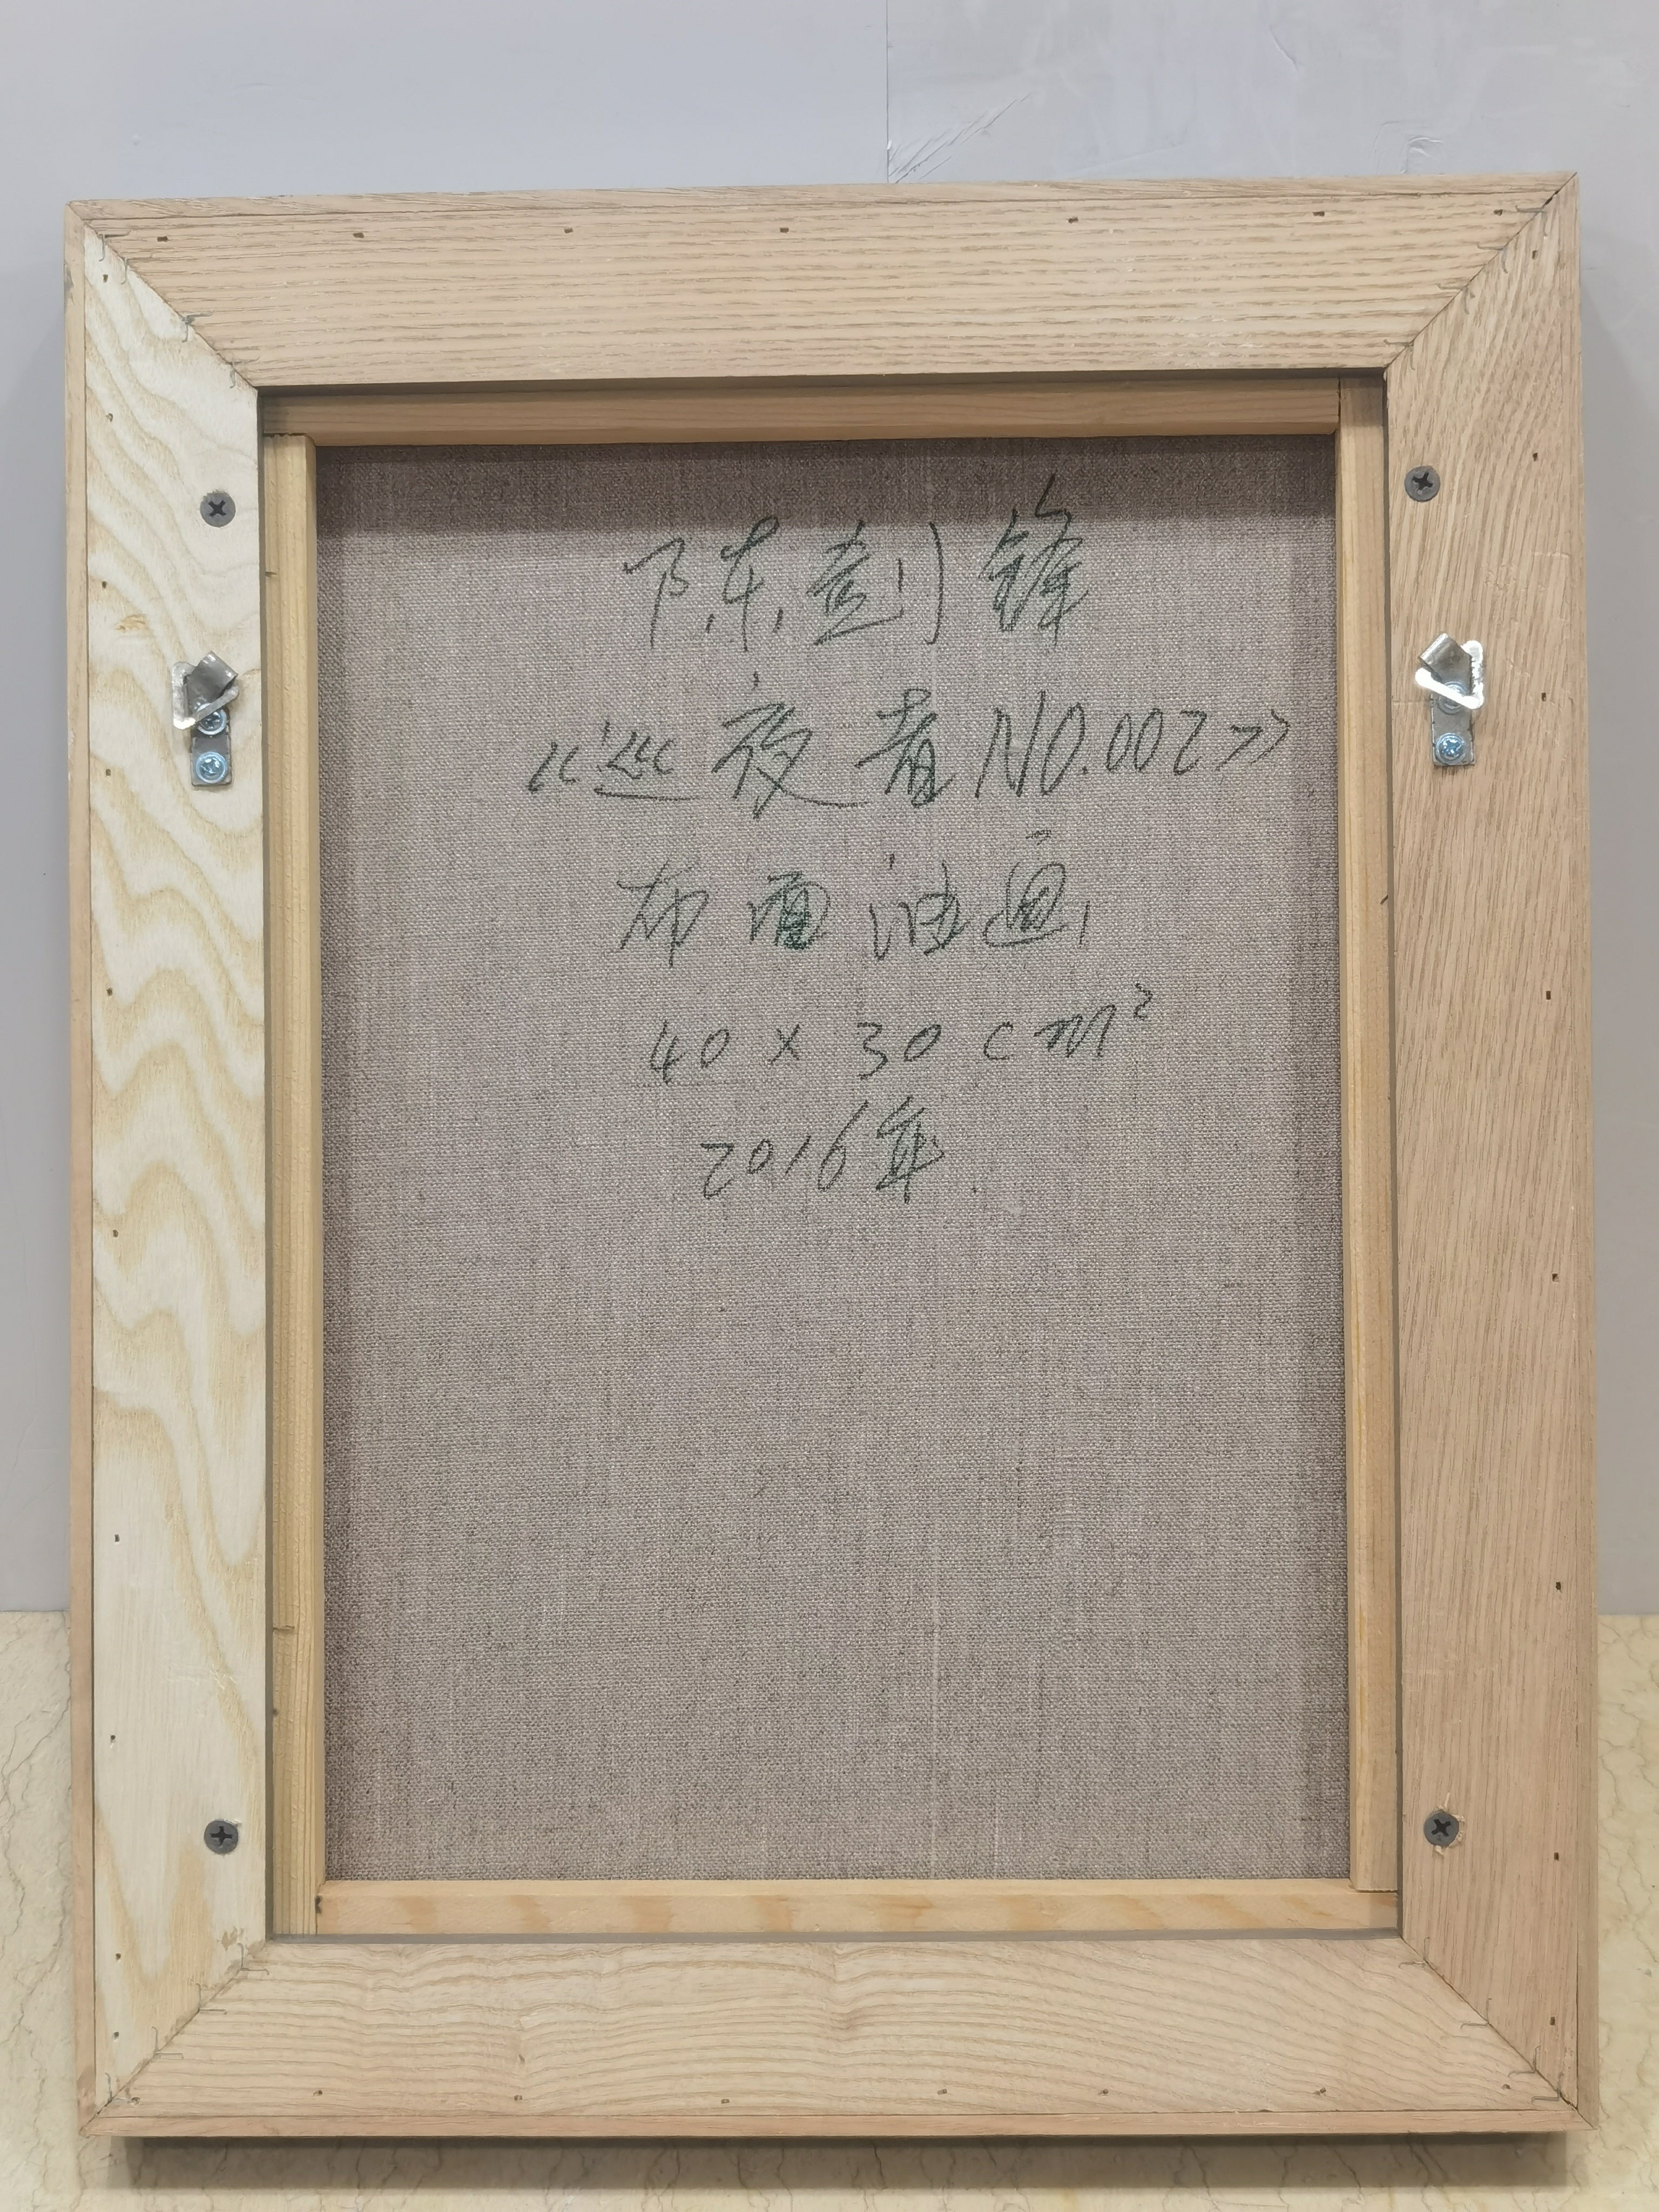 陈剑锋
《巡夜者NO.002》
布面油画
40 x 30 cm²
2016年